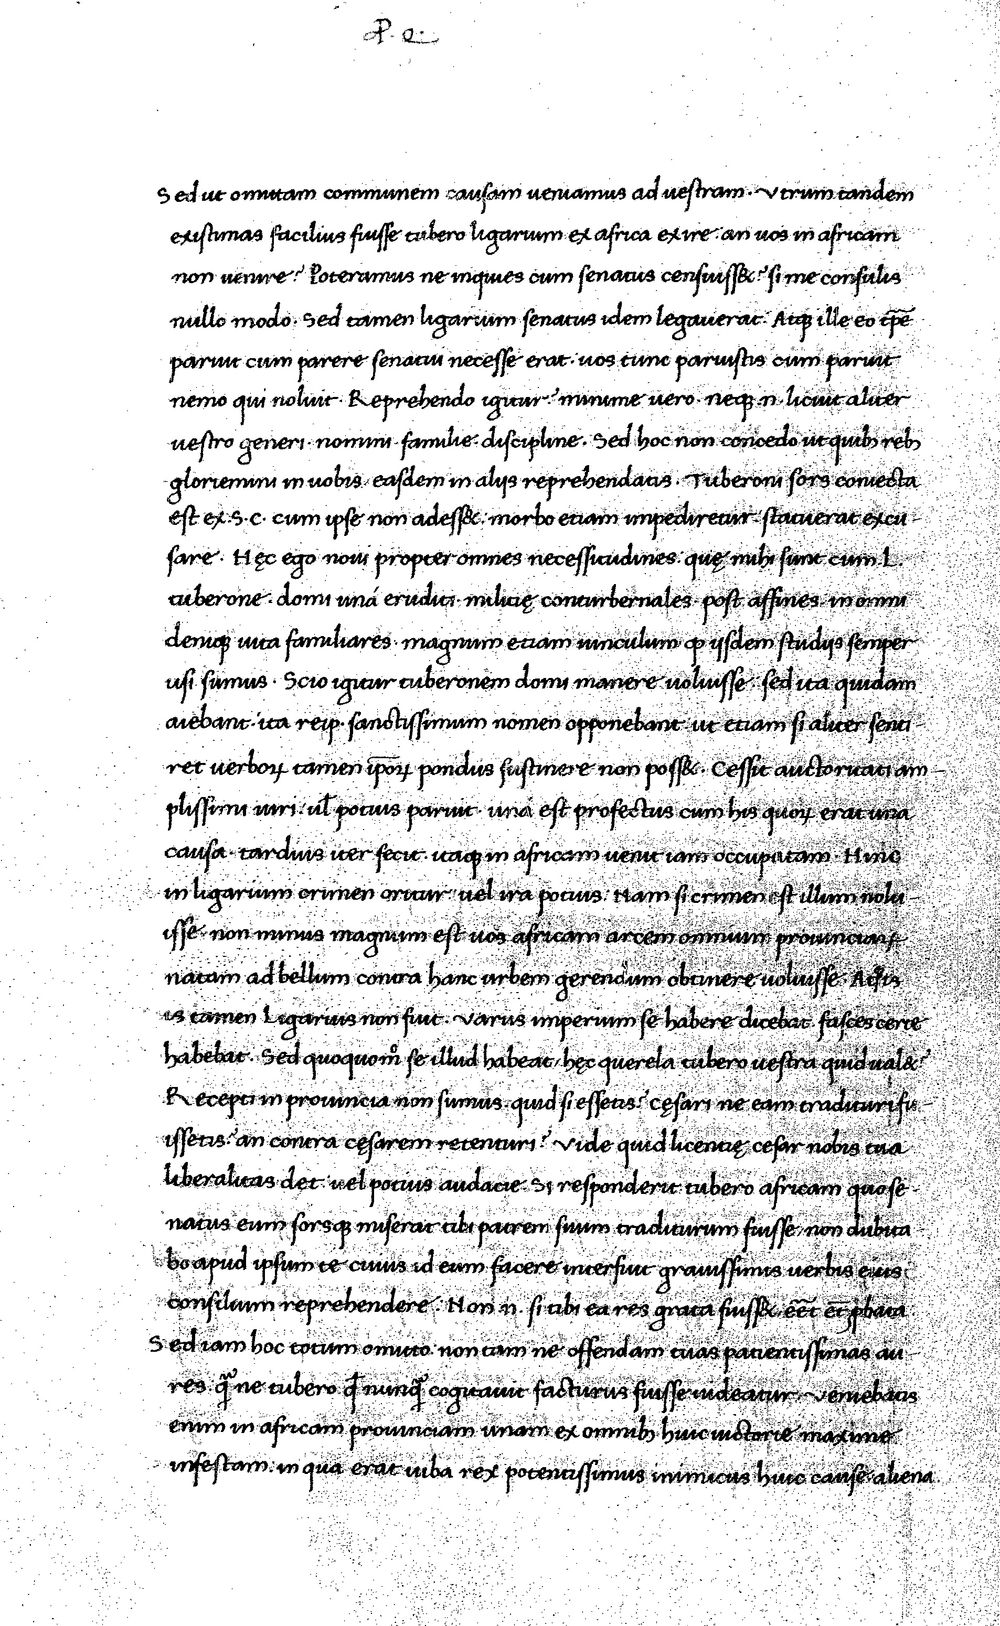 P. Q.
Sed ut omittam communem causam ueniamus ad uestram. Vtrum tandem
existimas facilius fuisse tubero ligarium ex africa exire. an uos in africam
non uenire? Poteramus ne inquies cum senatus censuiss&? si me consulis
nullo modo. Sed tamen ligarium senatus idem legauerat. Atq; ille eo tp̄e
paruit cum parere senatui necesse erat. uos tunc paruistis cum paruit
nemo qui noluit. Reprehendo igitur? minime uero. neq; .n. licuit aliter
uestro generi. nomini. familie. discipline. Sed hoc non concedo ut quib; reb;
gloriemini in uobis/ easdem in alijs reprehendatis. Tuberoni sors coniecta
est ex .S.C. cum ipse non adess&. morbo etiam impediretur. statuerat excu
sare. Hęc ego noui propter omnes necessitudines. quę mihi sunt cum .L.
tuberone. domi uná eruditi. militię conturbernales. post affines. in omni
deniq; uita familiares. magnum etiam uinculum ꝙ ijsdem studijs semper
usi sumus. Scio igitur tuberonem domi manere uoluisse. sed ita quidam
aiebant. ita reip. sanctissimum nomen opponebant. ut etiam si aliter senti-
ret uerboꝝ tamen ip̄oꝝ pondus sustinere non poss&. Cessit auctoritati am-
plissimi uiri. ul̄ potius paruit. una est profectus cum his quoꝝ erat una
causa. tardius iter fecit. itaq; in africam uenit iam occupatam. Hinc
in ligarium crimen oritur. uel ira potius. Nam si crimen est illum nolu-
isse. non minus magnum est uos africam arcem omnium prouinciaꝝ
natam ad bellum contra hanc urbem gerendum obtinere uoluisse. Atq;
is tamen Ligarius non fuit. Varus imperium se habere dicebat. fasces certe
habebat. Sed quoquom̊ se illud habeat/ hęc querela tubero uestra quid ual&?
Recepti in prouincia non sumus. quid si essetis? cęsari ne eam tradituri fu-
issetis? an contra cęsarem retenturi? Vide quid licentię cesar nobis tua
liberalitas det. uel potius audacie. Si responderit tubero africam quo se-
natus eum sorsq; miserat tibi patrem suum traditurum fuisse/ non dubita
bo apud ipsum te cuius id eum facere interfuit grauissimis uerbis eius
consilium reprehendere. Non .n. si tibi ea res grata fuiss& eēt et ꝓbata
Sed iam hoc totum omitto. non tam ne offendam tuas patientissimas au-
res. qᷓ ne tubero ꝙ nunqᷓ cogitauit facturus fuisse uideatur. Veniebatis
enim in africam prouinciam unam ex omnib; huic uictorie maxime
infestam. in qua erat iuba rex potentissimus inimicus huic cause. aliena